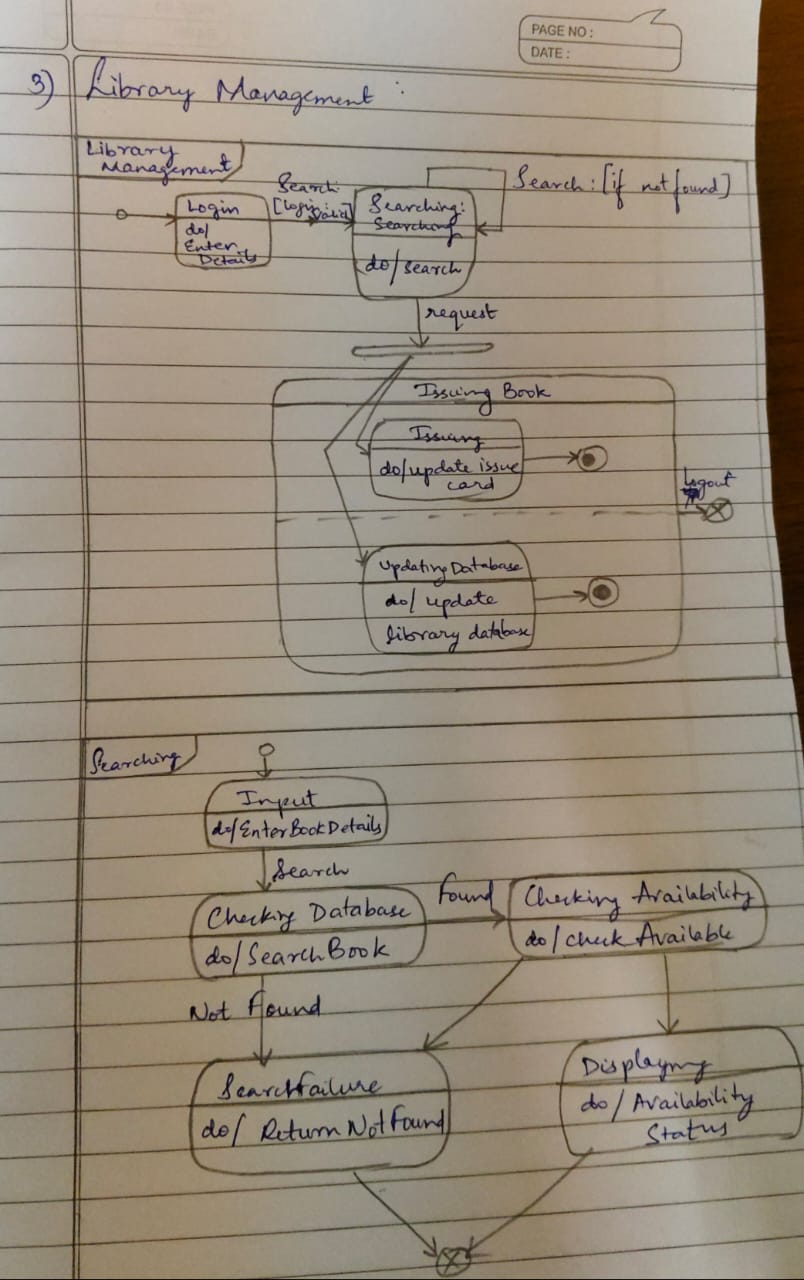 PAGE NO :
DATE :
3) Library Management :
Library
Management
Search:
[Login:
Valid]
Search: [if not found]
Login
do/
Enter
Details
Searching:
Searching
do/search
request
Issuing Book
Issuing
do/update issue
card
logout
Updating Database
do/ update
library database
Searching
Input
do/EnterBookDetails
Search
Checking Database
do/SearchBook
Found
Checking Availability
do/check Available
Not Found
SearchFailure
do/ Return NotFound
Displaying
do/Availability
Status